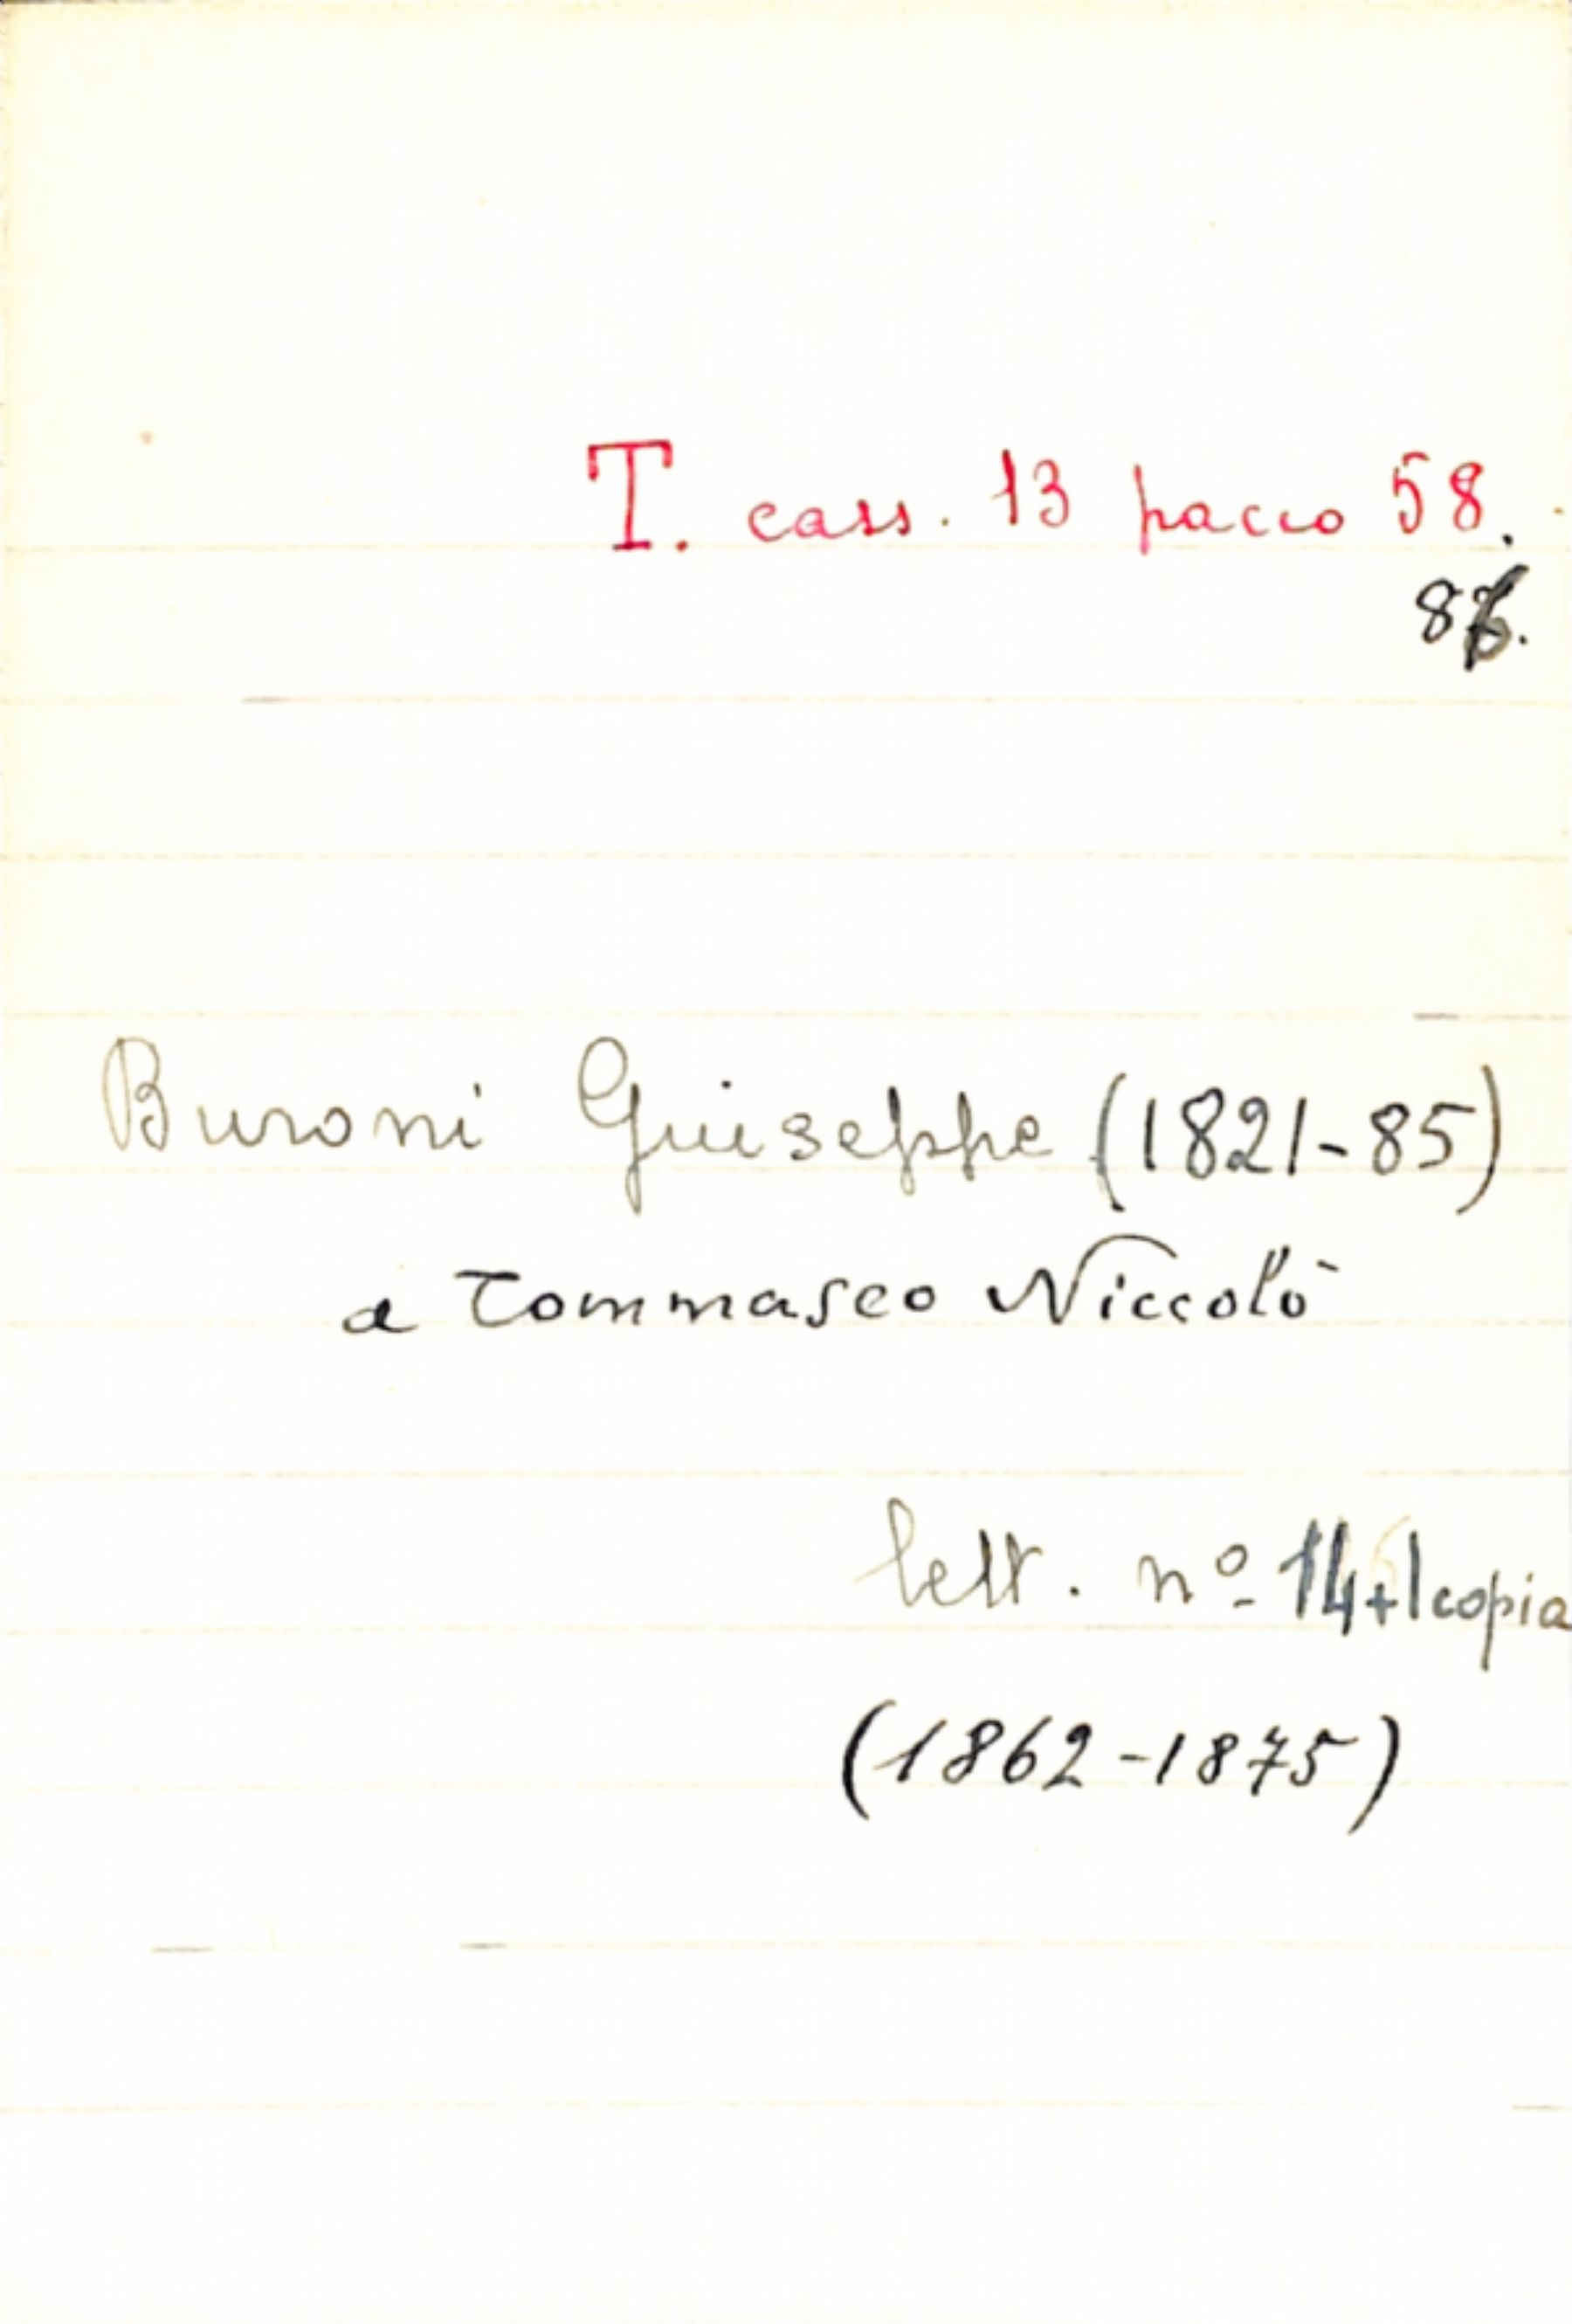 T. cass. 13 pacco 58.
86.
Buroni Giuseppe (1821-85)
a Tommaseo Niccolò
lett. nº 14+1copia
(1862-1875)